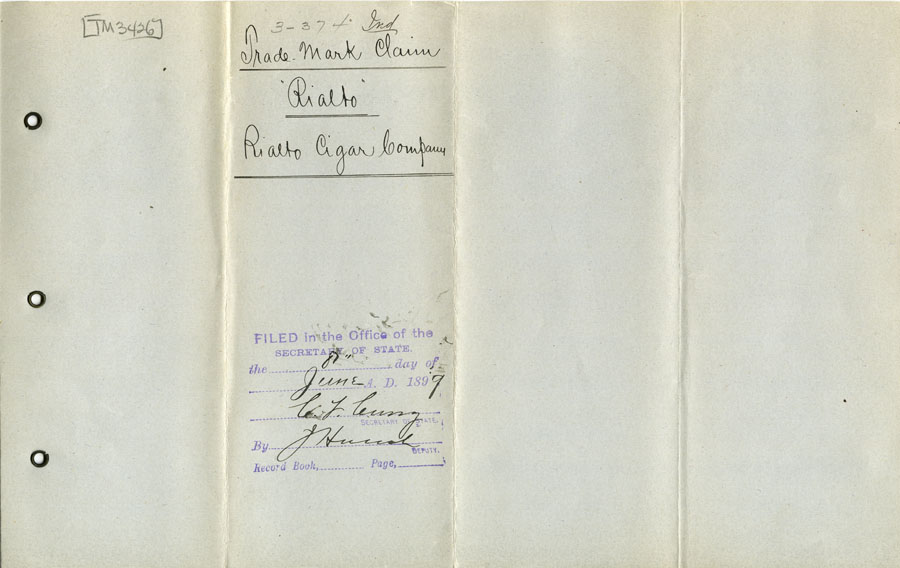 [TM3426]
3-374 Ind
Trade-Mark Claim
"Rialto"
Rialto Cigar Company
FILED in the Office of the
SECRETARY OF STATE.
the 8th day of
June A. D. 1899
C. F. Curry
SECRETARY OF STATE.
By
DEPUTY.
Record Book, Page,